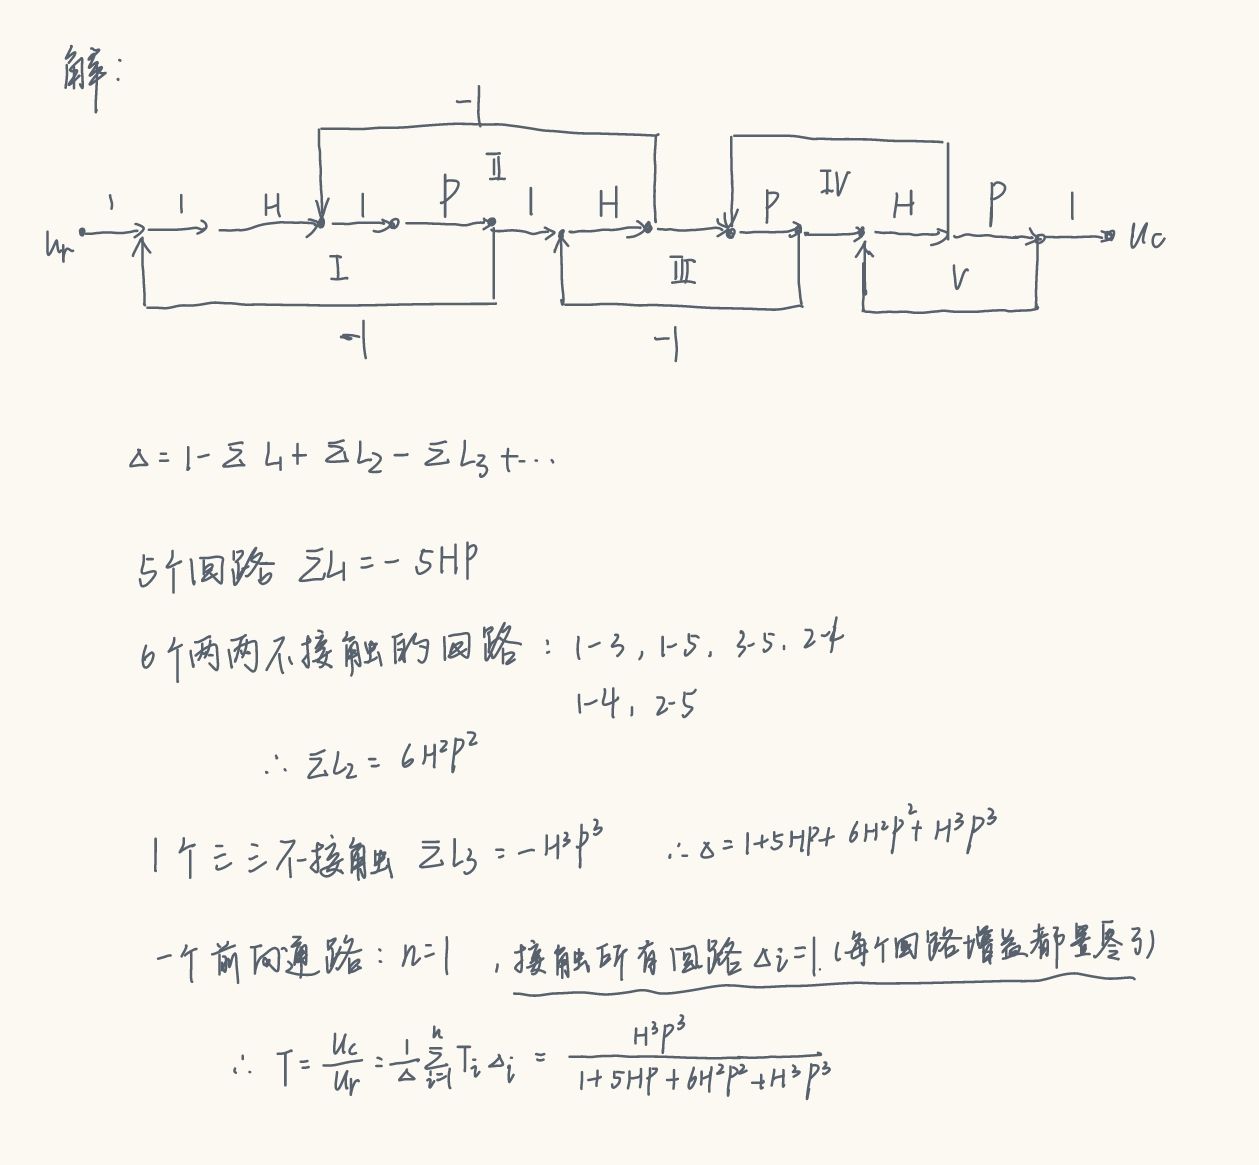 解：
-1
II IV
1 1 H 1 P 1 H P H P 1
ur uc
I III V
-1 -1
Δ = 1 - Σ L1 + Σ L2 - Σ L3 + …
5个回路 ΣL1 = - 5HP
6个两两不接触的回路：1-3, 1-5, 3-5, 2-4
1-4, 2-5
∴ ΣL2 = 6H²P²
1个三三不接触 ΣL3 = - H³P³ ∴ Δ = 1+5HP+ 6H²P²+ H³P³
一个前向通路：n=1 ，接触所有回路 Δi=1.(每个回路增益都是零了)
∴ T = uc/ur = 1/Δ Σ(i=1..n) Ti Δi = H³P³/(1+5HP+6H²P²+H³P³)